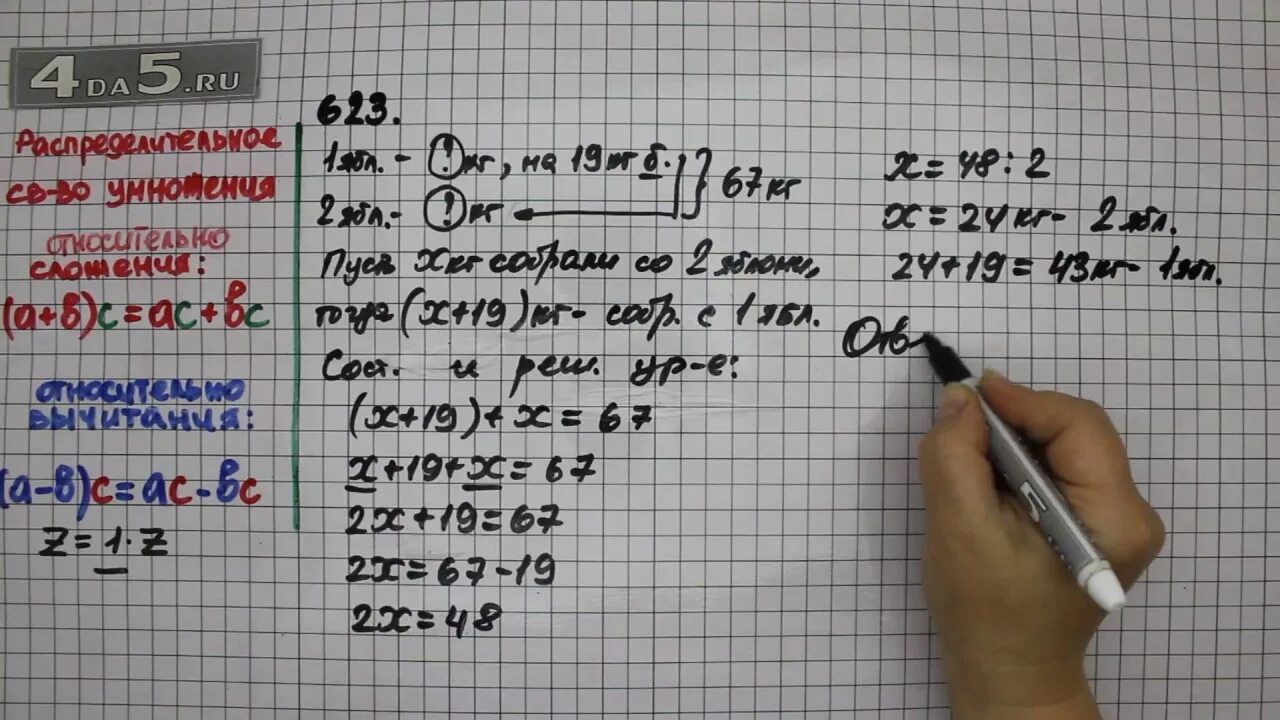 4DA5.RU
Распределительное
св-во умножения
относительно
сложения:
(a+b)c=ac+bc
относительно
вычитания:
(a-b)c=ac-bc
z=1·z
623.
1 ябл. - (!) кг, на 19 кг б. } 67 кг
2 ябл. - (!) кг
Пусть x кг собрали со 2 яблони,
тогда (x+19) кг - собр. с 1 ябл.
Сост. и реш. ур-е:
(x+19)+x=67
x+19+x=67
2x+19=67
2x=67-19
2x=48
x=48:2
x=24 кг - 2 ябл.
24+19=43 кг - 1 ябл.
Отв
5